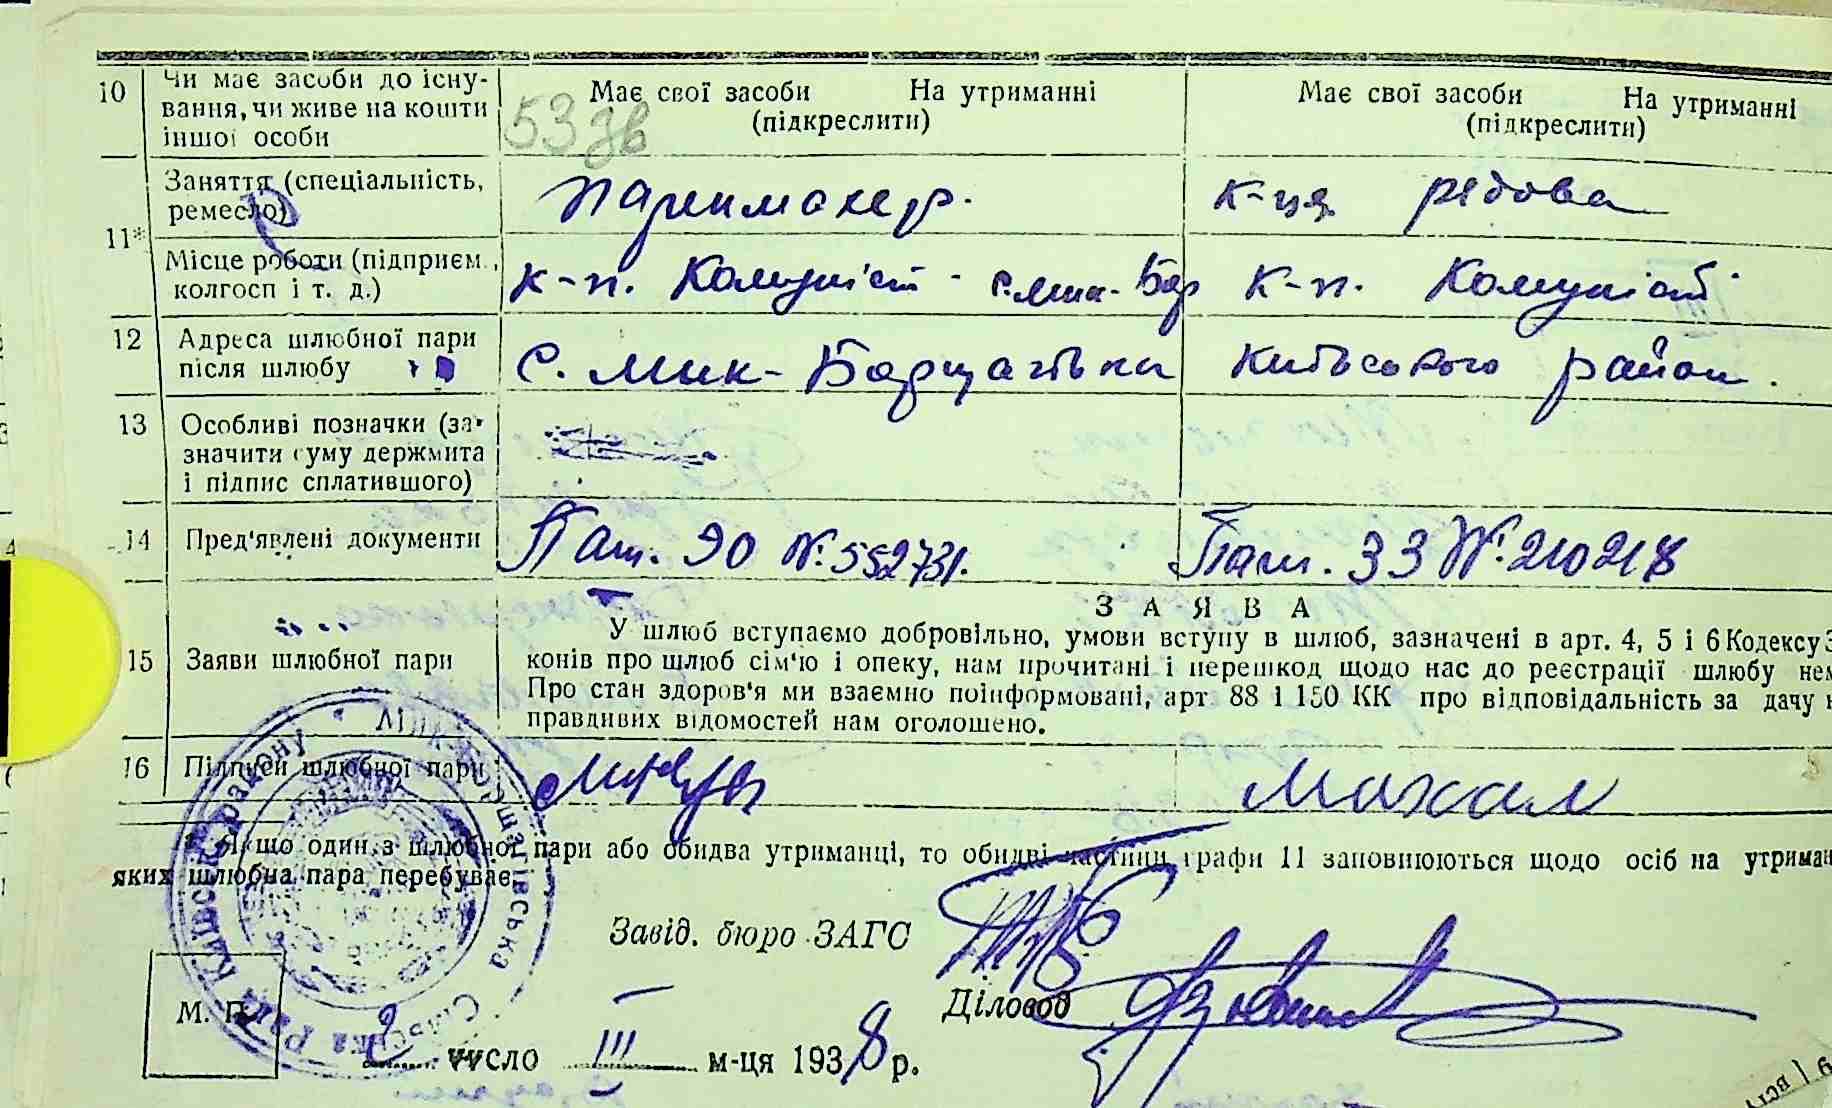 10 Чи має засоби до існу-
вання, чи живе на кошти
іншої особи
Має свої засоби На утриманні
(підкреслити)
Має свої засоби На утриманні
(підкреслити)
53 зв
11* Заняття (спеціальність,
ремесло)
Парикмахер.
к-ця рядова
Місце роботи (підприєм.,
колгосп і т. д.)
к-п. Комуніст - с. Мик-Бор
к-п. Комуніст
12 Адреса шлюбної пари
після шлюбу
с. Мик-Борщагівка Київського району.
13 Особливі позначки (за-
значити суму держмита
і підпис сплатившого)
14 Пред'явлені документи
Паш. ЭО №. 552731.
Паш. 33 №. 210218
15 Заяви шлюбної пари
ЗАЯВА
У шлюб вступаємо добровільно, умови вступу в шлюб, зазначені в арт. 4, 5 і 6 Кодексу З
конів про шлюб сім'ю і опеку, нам прочитані і перешкод щодо нас до реєстрації шлюбу нем
Про стан здоров'я ми взаємно поінформовані, арт 88 і 150 КК про відповідальність за дачу н
правдивих відомостей нам оголошено.
16 Підписи шлюбної пари
* Якщо один з шлюбної пари або обидва утриманці, то обидві частини графи 11 заповнюються щодо осіб на утриман
яких шлюбна пара перебуває.
Завід. бюро ЗАГС
Діловод
М. П.
2 число III м-ця 1938 р.
Мик-Борщагівська Сільська Рада Київськ. району